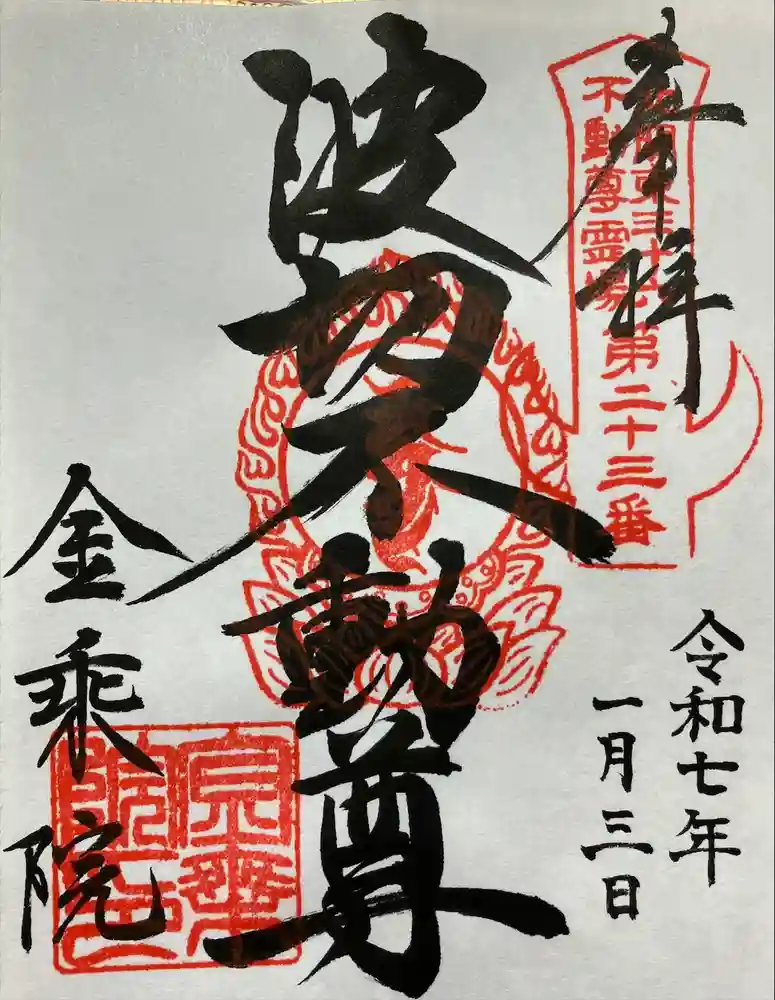 奉拝
北関東三十六
不動尊霊場第二十三番
令和七年
一月三日
波切不動尊
金乗院